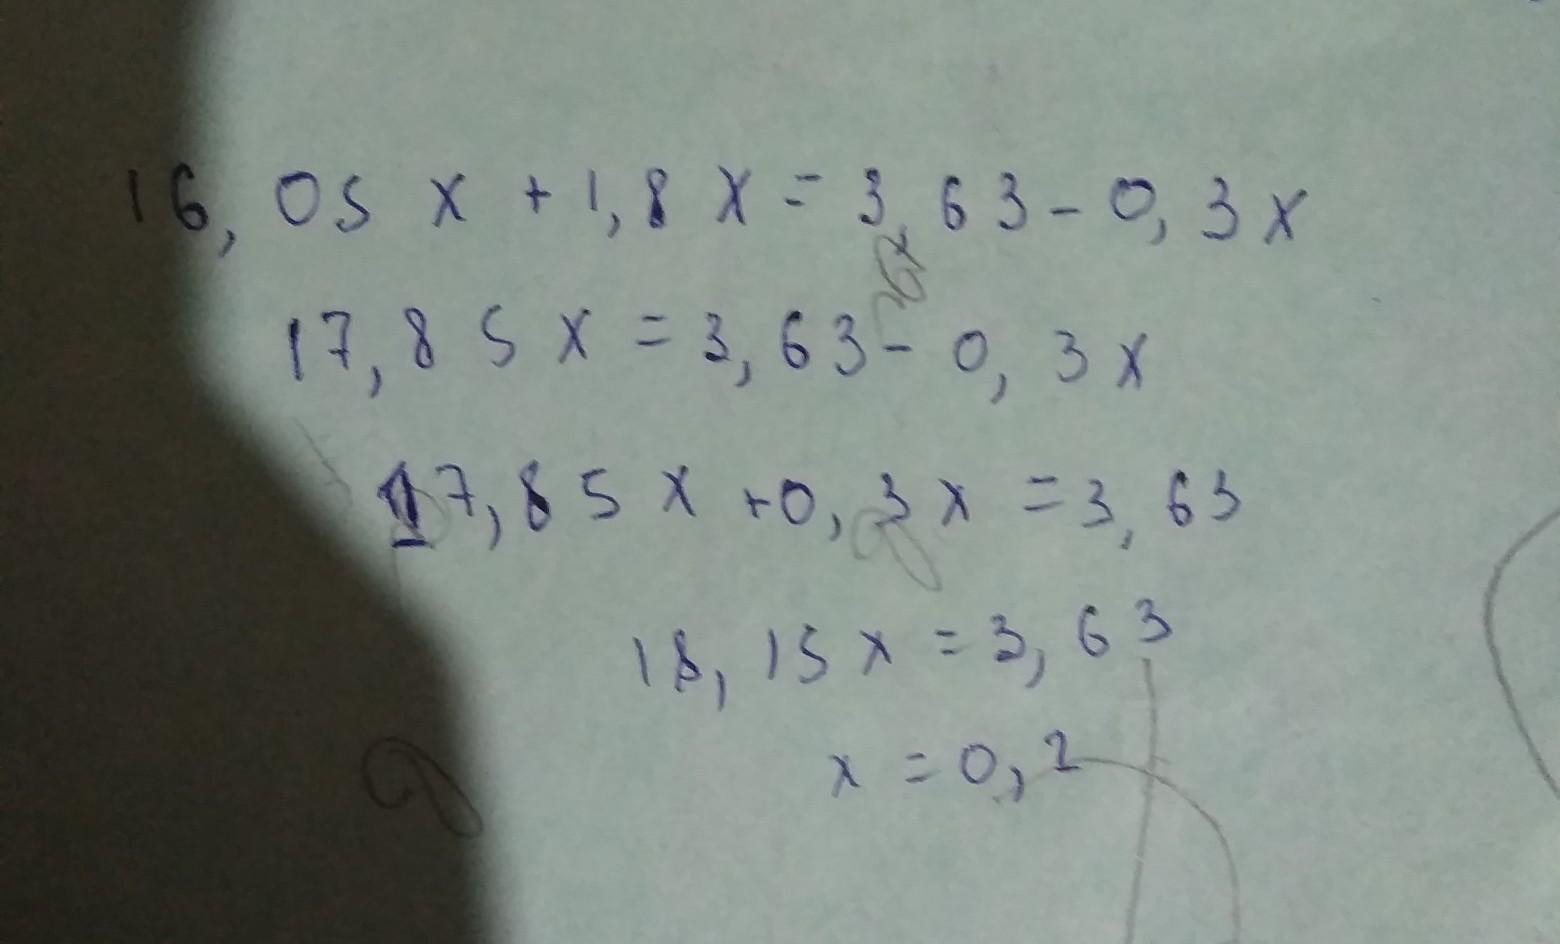 16,05x+1,8x=3,63-0,3x
17,85x=3,63-0,3x
17,85x+0,3x=3,63
18,15x=3,63
x=0,2